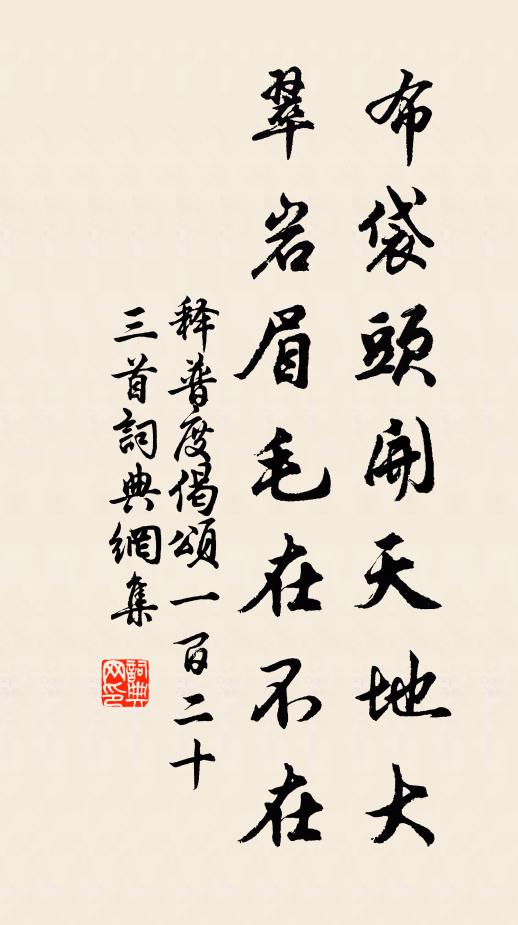 布袋頭開天地大
翠岩眉毛在不在
释普度偈頌一百二十
三首詞典網集
詞典网印